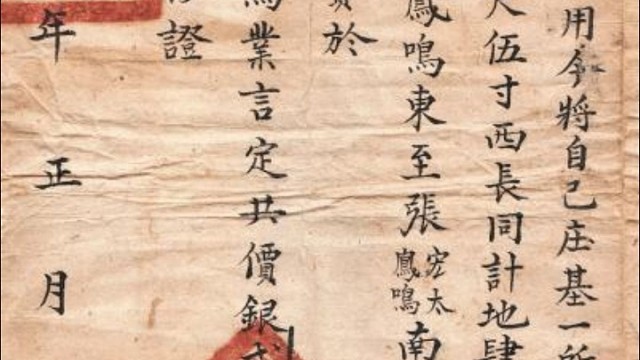 用今將自己庄基一所
尺伍寸西長同計地肆
鳳鳴東至張宏太鳳鳴南
於
爲業言定共價銀弍
證
年正月